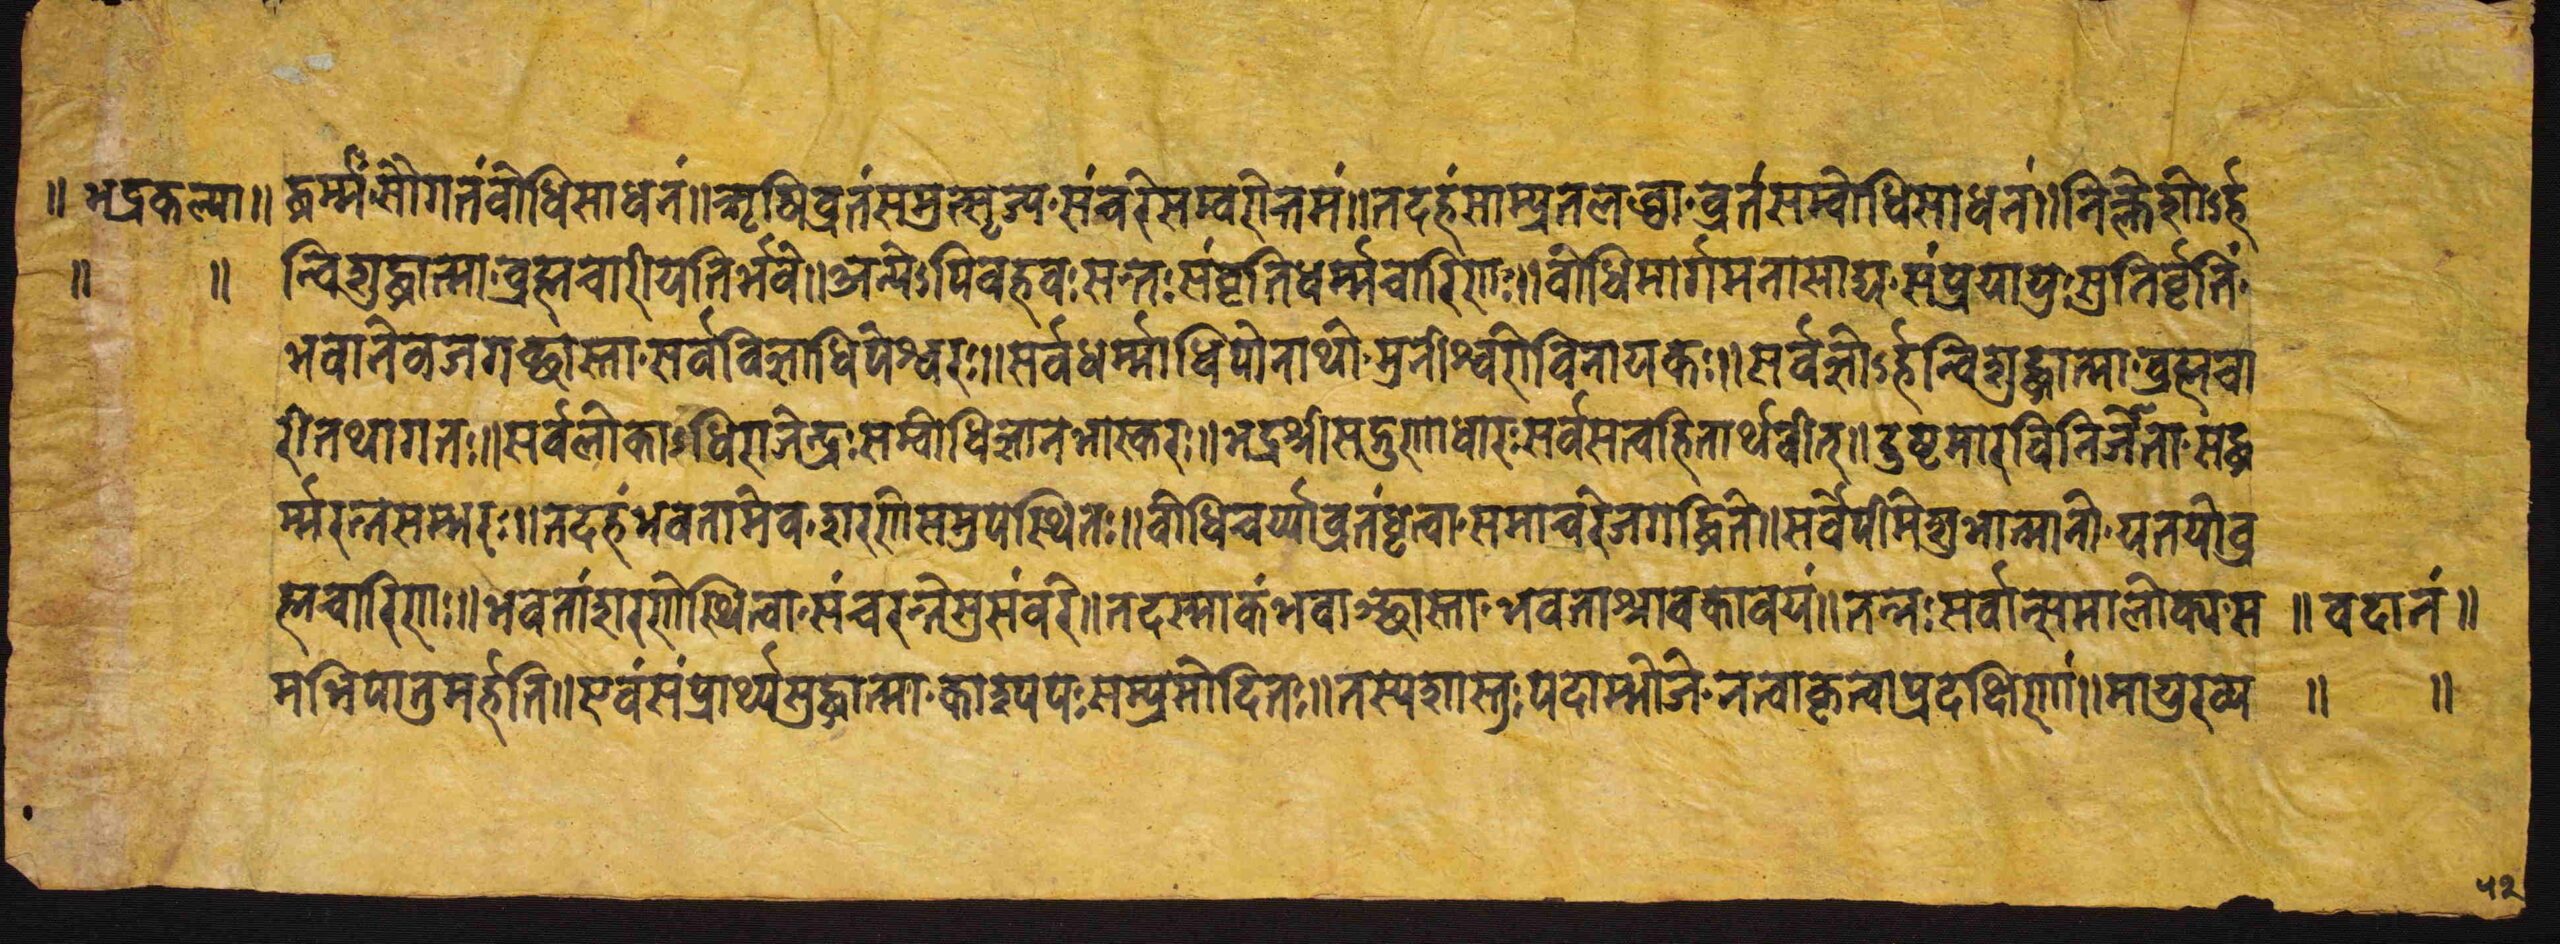 ॥ भद्रकल्पा॥ द्धर्म्मं सौगतं बोधिसाधनं॥ ऋषिव्रतं समुत्सृज्य संचरे सम्वरोत्तमं॥ तदहं साम्प्रतं लब्ध्वा व्रतं सम्बोधिसाधनं॥ निःक्लेशोऽर्ह
॥ ॥ न्विशुद्धात्मा ब्रह्मचारी यतिर्भवे॥ अन्येऽपि वहवः सन्तः संवृतिधर्म्मचारिणः॥ बोधिमार्गमनासाद्य संप्रयायुः सुनिर्वृतिं
भवानेव जगच्छास्ता सर्वविद्याधिपेश्वरः॥ सर्वधर्म्माधिपो नाथो मुनीश्वरो विनायकः॥ सर्वज्ञोऽर्हन्विशुद्धात्मा ब्रह्मचा
री तथागतः॥ सर्वलोकाऽधिराजेन्द्रः सम्बोधिज्ञानभास्करः॥ भद्रश्रीसद्गुणाधारः सर्वसत्वहितार्थवीत्॥ दुष्टमारविनिर्जेता सद्ध
र्म्मरत्नसम्भरः॥ तदहं भवतामेव शरणे समुपस्थितः॥ बोधिचर्य्याव्रतं धृत्वा समाचरे जगद्धिते॥ सर्वेपीमे शुभात्मानो यतयो ब्र
ह्मचारिणः॥ भवतां शरणे स्थित्वा संचरन्ते सुसंवरे॥ तदस्माकं भवाञ्छास्ता भवतां श्रावका वयं॥ तन्नः सर्वान्समालोक्य स ॥ वदानं ॥
मभिपातुमर्हति॥ एवं संप्रार्थ्य सुद्धात्मा काश्यपः सम्प्रमोदितः॥ तस्य शास्तुः पदाम्भोजे नत्वा कृत्वा प्रदक्षिणां॥ सायुरव्य ॥ ॥
५२